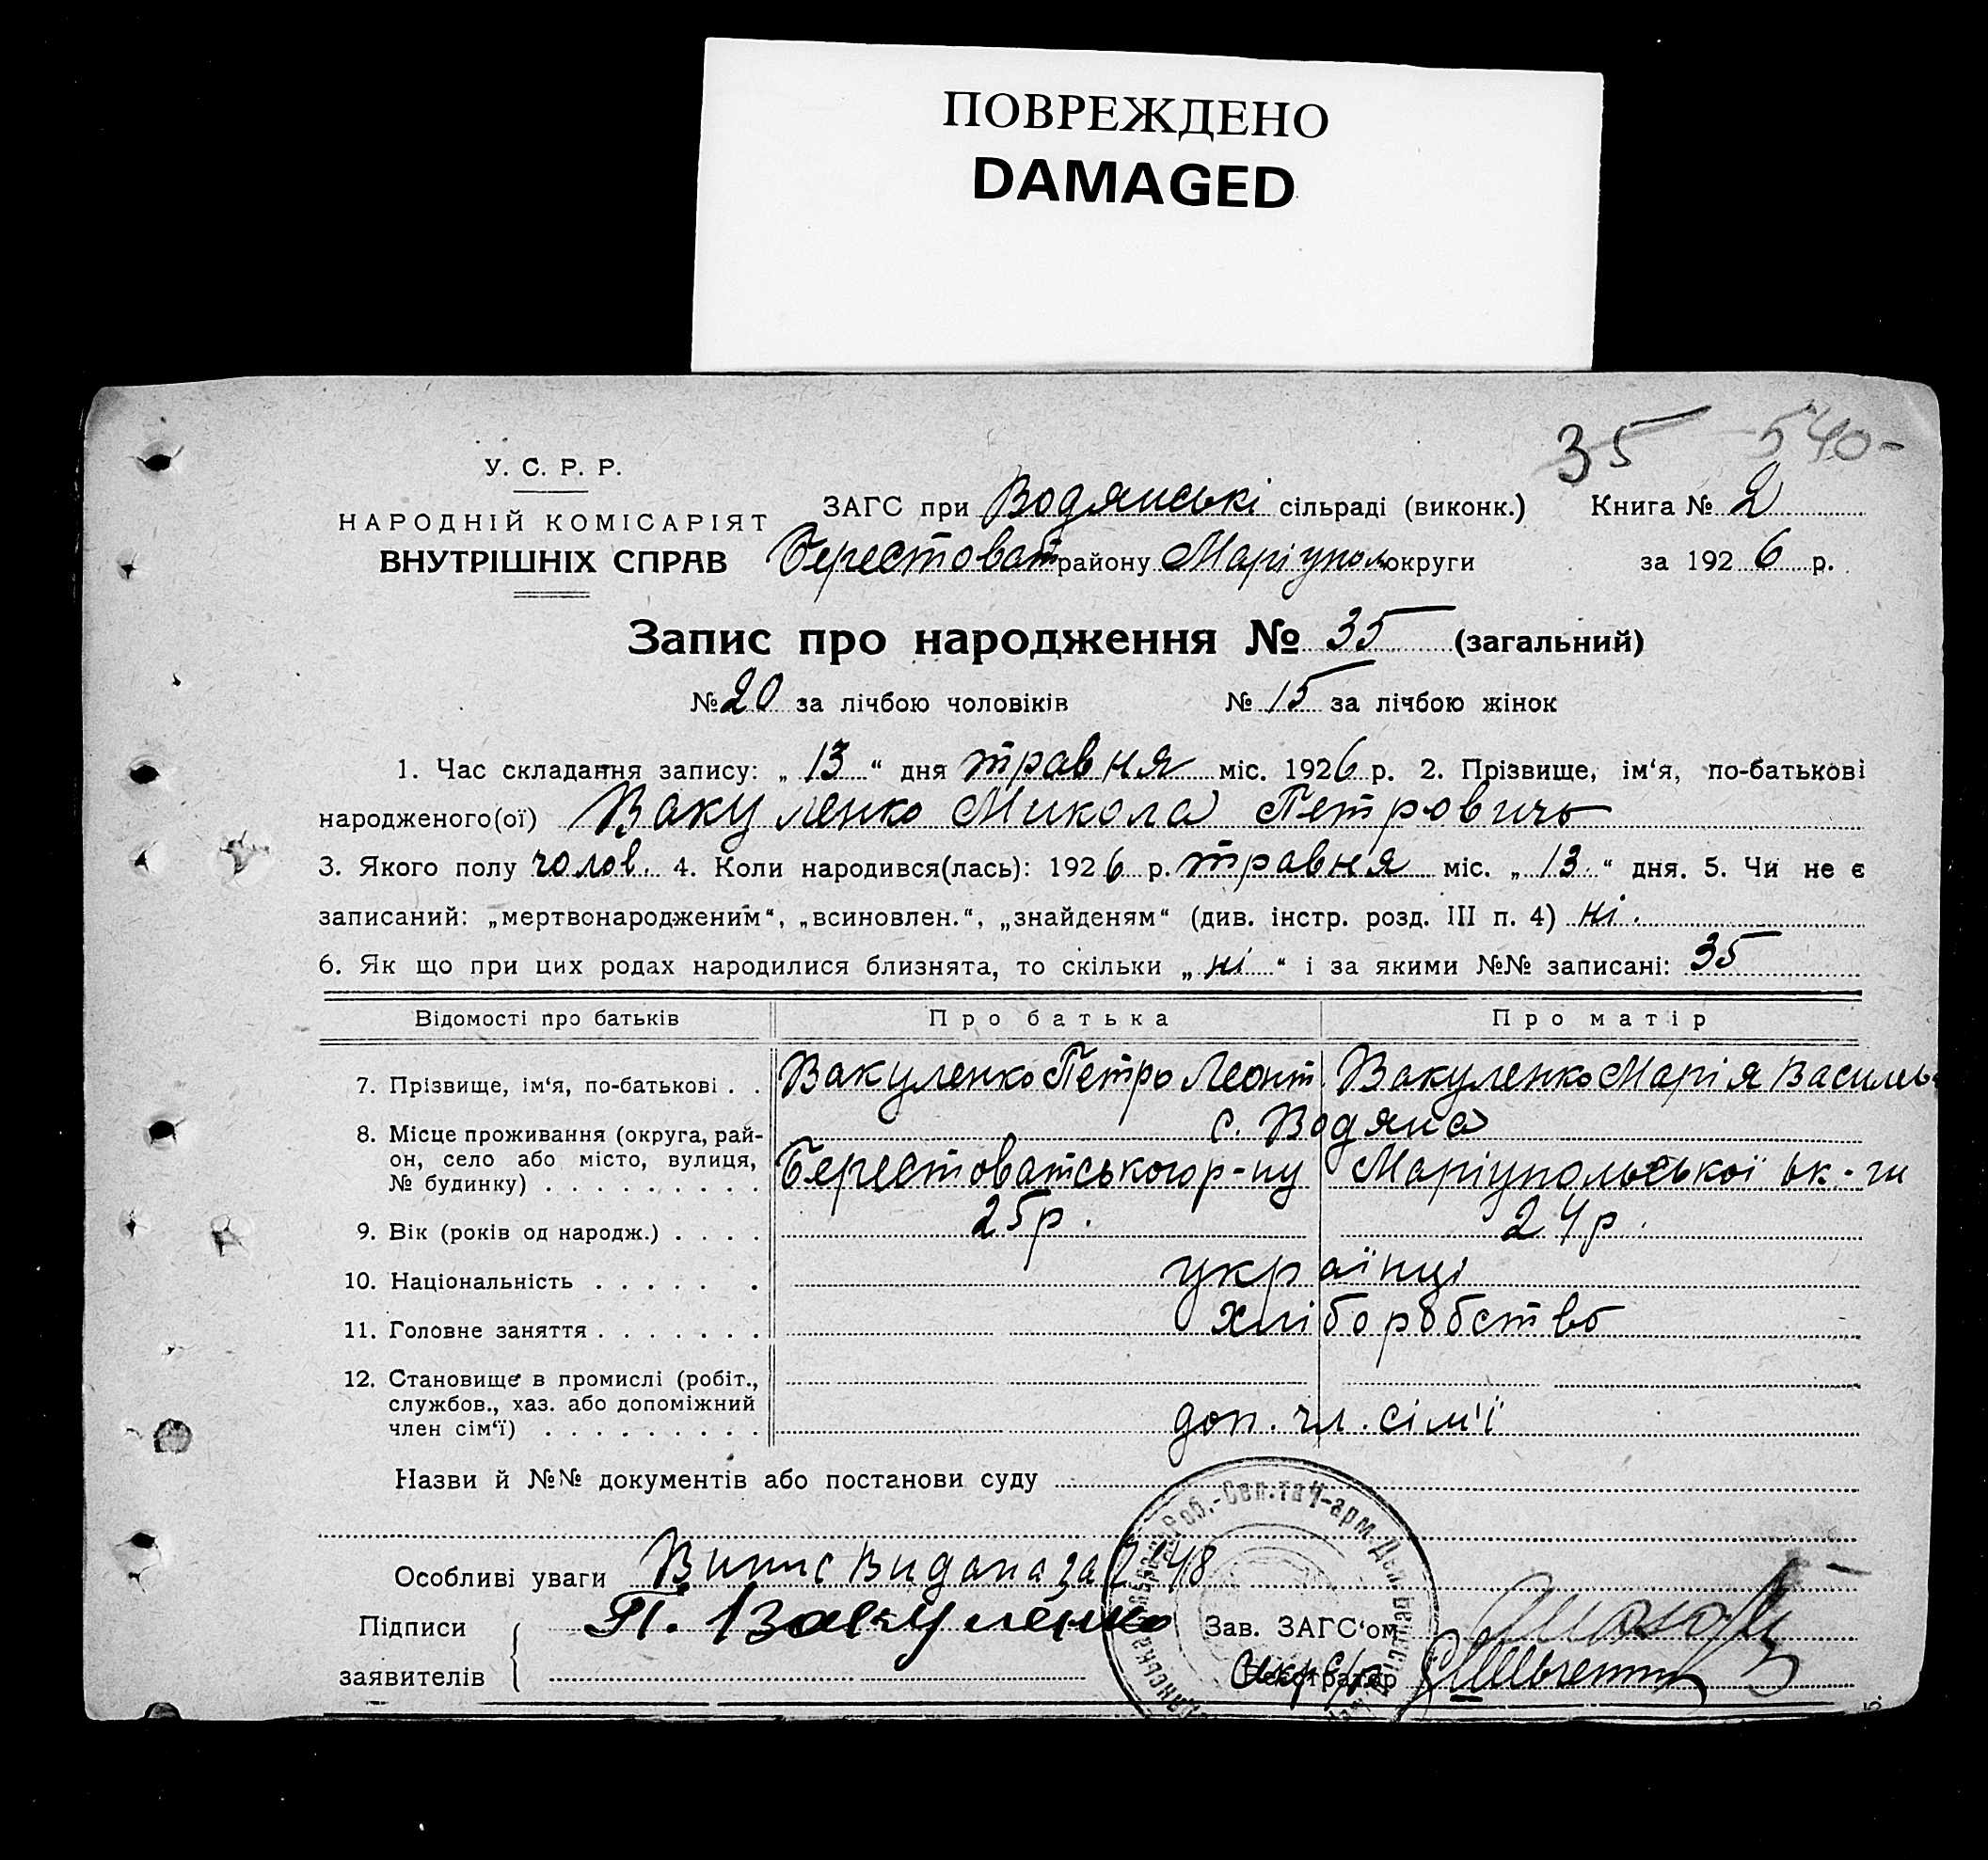 ПОВРЕЖДЕНО
DAMAGED
35 540-
У. С. Р. Р.
НАРОДНІЙ КОМІСАРІЯТ
ВНУТРІШНІХ СПРАВ
ЗАГС при Водянські сільраді (виконк.) Книга № 2
Берестоват району Маріупол округи за 1926 р.
Запис про народження № 35 (загальний)
№ 20 за лічбою чоловіків № 15 за лічбою жінок
1. Час складання запису: „ 13 “ дня травня міс. 1926 р. 2. Прізвище, ім‘я, по-батькові
народженого(ої) Вакуленко Микола Петровичь
3. Якого полу чолов. 4. Коли народився(лась): 1926 р. травня міс. „ 13 “ дня. 5. Чи не є
записаний: „мертвонародженим“, „всиновлен.“, „знайденям“ (див. інстр. розд. III п. 4) ні.
6. Як що при цих родах народилися близнята, то скільки „ ні “ і за якими №№ записані: 35
Відомості про батьків Про батька Про матір
7. Прізвище, ім‘я, по-батькові . . Вакуленко Петро Леонт. Вакуленко Марія Васильв
8. Місце проживання (округа, рай- с. Водяна
он, село або місто, вулиця,
№ будинку) . . . . . . . . . Берестоватського р-ну Маріупольської ок.-ги
9. Вік (років од народж.) . . . . 25 р. 24 р.
10. Національність . . . . . . українці
11. Головне заняття . . . . . . . хліборобство
12. Становище в промислі (робіт.,
службов., хаз. або допоміжний
член сім‘ї) . . . . . . . . . доп. чл. сім'ї
Назви й №№ документів або постанови суду
Роб.-Сел. та Ч-арм. Деп.
Особливі уваги Випис Видана за № 48
Підписи П. Вакуленко Зав. ЗАГС‘ом
заявителів Секр с/р Реєстратор